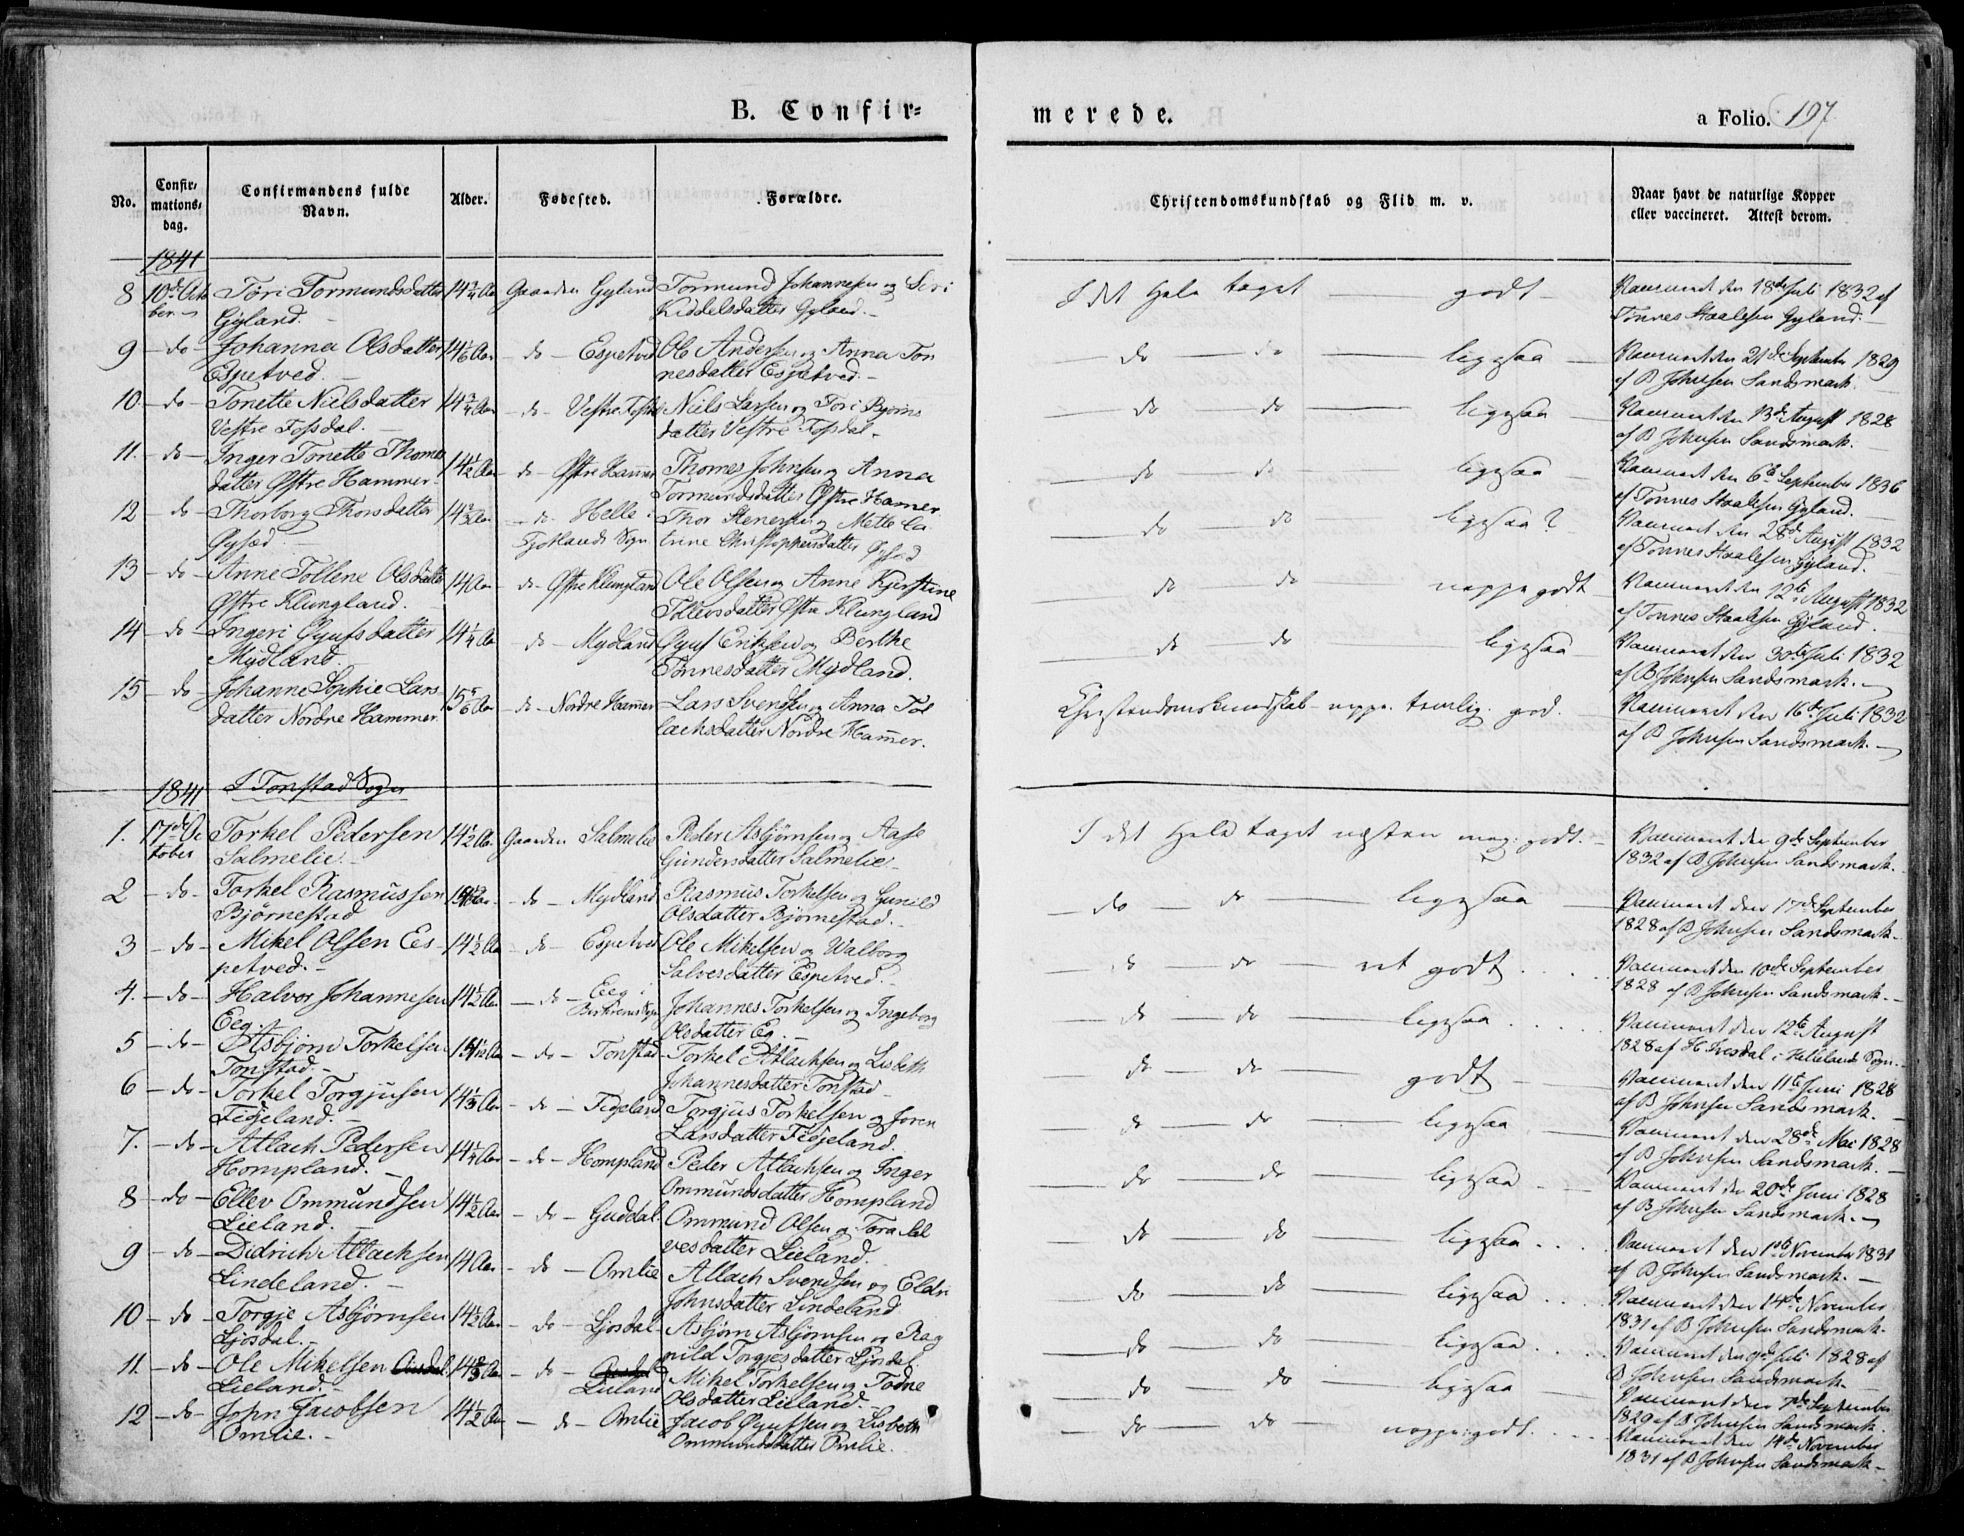 B. Confir=
merede.
a Folio. 197
No.
Confir-
mations-
dag.
Confirmandens fulde
Navn.
Alder.
Fødested.
Forældre.
Christendomskundskab og Flid m. v.
Naar havt de naturlige Kopper
eller vaccineret. Attest derom.
1841
8 10de Octo Tori Tormundsdatter 14 3/4 Aar Gaarden Gyland Tormund Johannesen og Seri I det Hele taget godt Vaccineret den 18de Juli 1832 af
ber Gyland. Kiddelsdatter Gyland. Tønnes Staalesen Gyland.
9 do Johanna Olsdatter 14 1/6 Aar do Espetved Ole Andersen og Anna Ton do do ligesaa Vaccineret den 21de September 1829
Espetved. nesdatter Espetved. af B Johnsen Sandsmark.
10 do Tonette Nielsdatter 14 3/4 Aar do Vestre Fossdal Niels Larsen og Tori Bjørns do do ligesaa Vaccineret den 13de August 1828
Vestre Fossdal. datter Vestre Fossdal. af B Johnsen Sandsmark.
11. do Inger Tonette Thomes 14 1/2 Aar do Østre Hammer Thomes Johnsen og Anna do do ligesaa Vaccineret den 6te September 1836
datter Østre Hammer. Tormundsdatter Østre Hamer af Tonnes Staalesen Gyland.
12 do Thorborg Thorsdatter 14 2/3 Aar do Helle i Thor Stenersen og Mette Ca do do ligesaa? Vaccineret den 28de August 1832
Øysæd Fjotlands Sogn trine Christophersdatter Øysæd af Tonnes Staalesen Gyland.
13 do Anne Tollene Olsdatter 14 Aar do Østre Klungland Ole Olsen og Anne Kjerstine do do noppe godt Vaccineret den 12te August 1832
Østre Klungland. Tollevsdatter Østre Klungland af Tonnes Staalesen Gyland.
14 do Ingeri Gyufsdatter 14 1/4 Aar do Mydland Gyuf Eriksen og Berthe do do ligesaa Vaccineret den 30te Juli 1832
Mydland. Tønnesdatter Mydland. af B Johnsen Sandsmark.
15 do Johanne Sophie Lars 15 5/6 Aar do Nordre Hammer Lars Svendsen og Anna Tol Christendomskundskab noppe temlig god. Vaccineret den 16de Juli 1832
datter Nordre Hammer. lachsdatter Nordre Hamer. af B Johnsen Sandsmark.
1841 I Tonstad Sogn
1. 17de Oc Torkel Pedersen 14 1/2 Aar Gaarden Salmelie Peder Asbjørnsen og Aase I det Hele taget næsten meg: godt. Vaccineret den 9de September
tober Salmelie. Gundersdatter Salmelie 1832 af B Johnsen Sandsmark.
2 do Torkel Rasmussen do Mydland Rasmus Torkelsen og Gunild do do ligesaa Vaccineret den 17de September
Bjørnestad Olsdatter Bjørnestad. 1828 af B Johnsen Sandsmark.
3 do Mikel Olsen Es- 14 1/2 Aar do Espetved Ole Mikelsen og Walborg do do ret godt Vaccineret den 10de September
petved. Salvesdatter Espetved. 1828 af B Johnsen Sandsmark.
4. do Halvor Johannesen 14 1/2 Aar do Eeg i Johannes Torkelsen og Ingeborg do do ligesaa Vaccineret den 12te August
Eeg. Birkrems Sogn Olsdatter Eg. 1828 af H Ivesdal i Hellelands Sogn.
5 do Asbjørn Torkelsen do Tonstad Torkel Atlachsen og Lisbeth do do godt Vaccineret den 11te Juni 1828
Tonstad. Johannesdatter Tonstad af B Johnsen Sandsmark.
6 do Torkel Torgjusen 14 1/3 Aar do Fidjeland Torgjus Torkelsen og Joren do do ligesaa Vaccineret den 28de Mai 1828
Fidjeland. Larsdatter Fidjeland. af B Johnsen Sandsmark.
7. do Atlach Pedersen 14 1/4 Aar do Hompland Peder Atlachsen og Inger do do ligesaa Vaccineret den 20de Juni 1828
Hompland. Ommundsdatter Hompland af B Johnsen Sandsmark.
8 do Ellev Ommundsen 14 1/2 Aar do Guddal Ommund Olsen og Tora Sal do do ligesaa Vaccineret den 1ste November 1831
Lieland. vesdatter Lieland. af B Johnsen Sandsmark.
9 do Didrich Atlachsen 14 Aar do Omlie Atlach Svendsen og Eldri do do ligesaa Vaccineret den 14de November
Lindeland. Johnsdatter Lindeland 1831 af B Johnsen Sandsmark.
10 do Torgje Asbjørnsen 14 1/2 Aar do Ljosdal Asbjørn Asbjørnsen og Rag do do ligesaa Vaccineret den 9de Juli 1828 af
Ljosdal. nild Torgjesdatter Ljosdal. B Johnsen Sandsmark.
11. do Ole Mikelsen 14 2/3 Aar do Mikel Torkelsen og Todne do do ligesaa Vaccineret den 7de September
Lieland. Lieland Olsdatter Lieland. 1829 af B Johnsen Sandsmark.
12 do John Jacobsen 14 1/2 Aar do Omlie Jacob Gyufsen og Lisbeth do do noppe godt. Vaccineret den 14de November
Omlie. Ommundsdatter Omlie. 1831 af B Johnsen Sandsmark